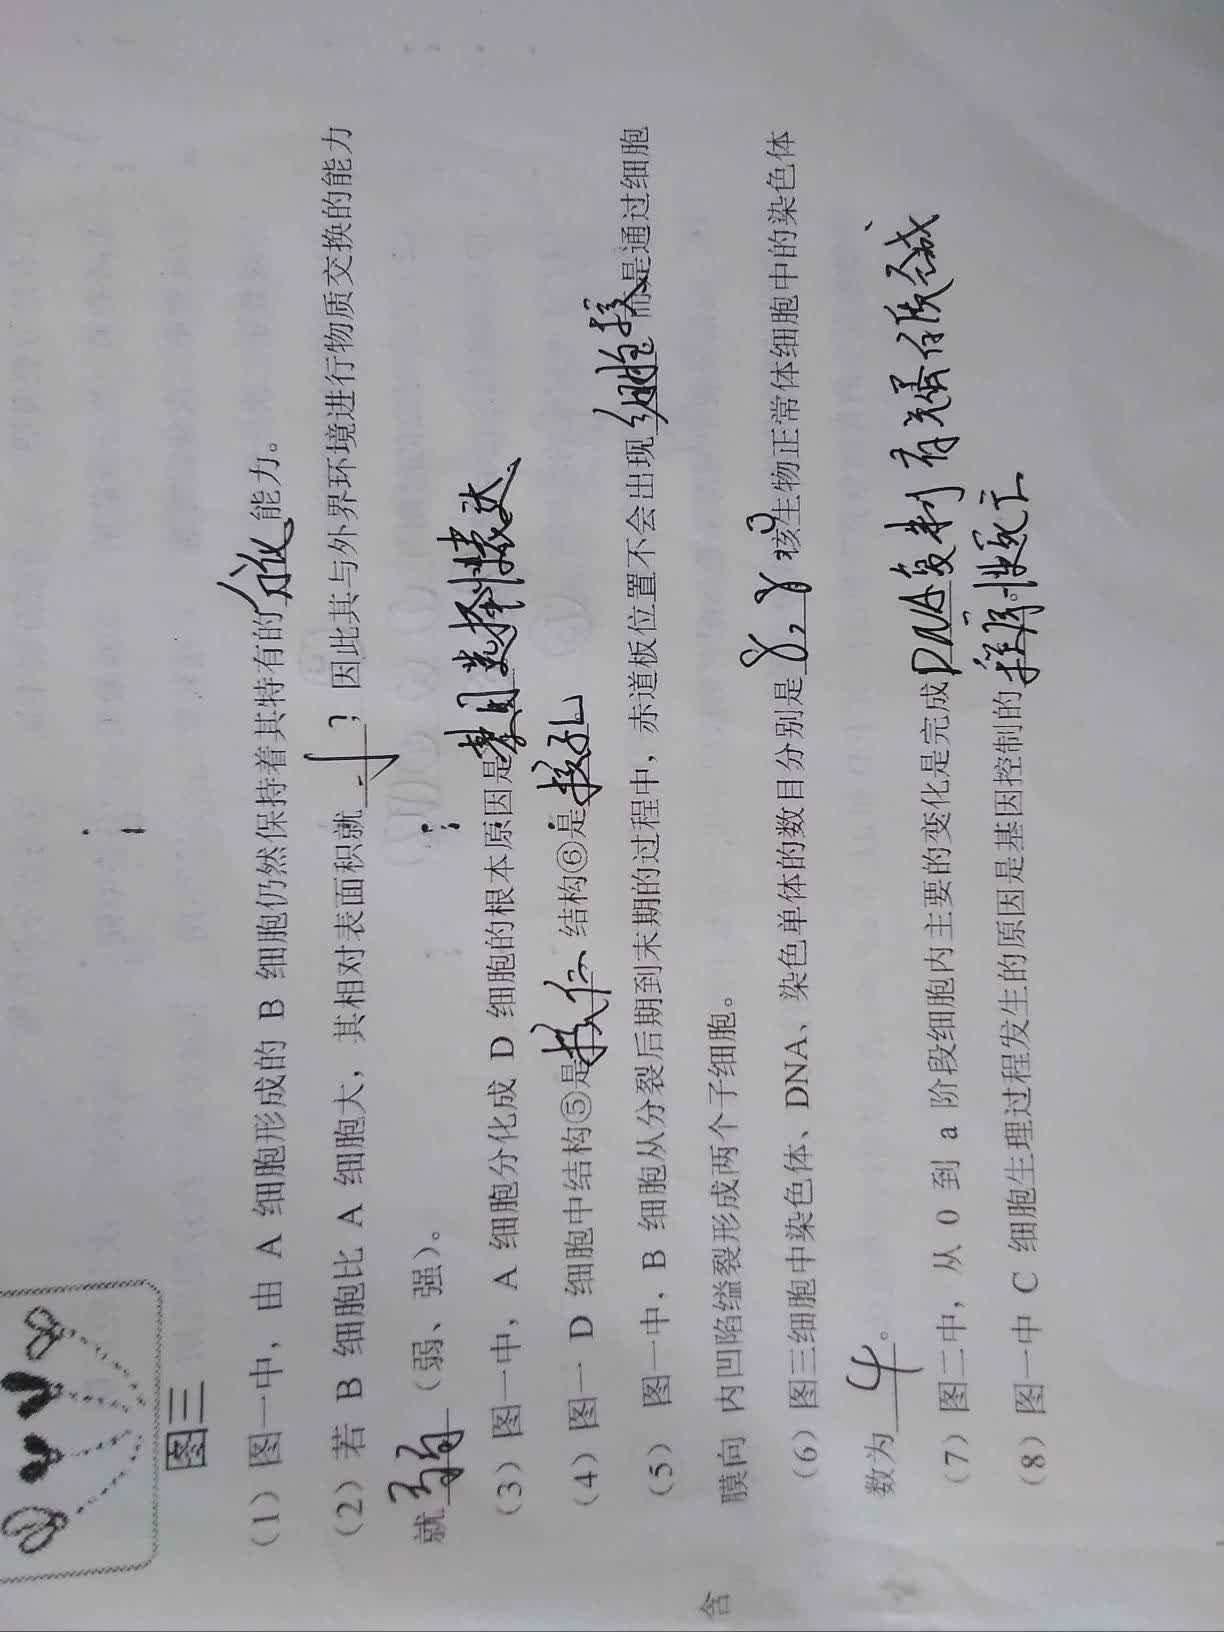 图三
(1) 图一中，由 A 细胞形成的 B 细胞仍然保持着其特有的分化能力。
(2) 若 B 细胞比 A 细胞大，其相对表面积就小；因此其与外界环境进行物质交换的能力
就弱（弱、强）。
(3) 图一中，A 细胞分化成 D 细胞的根本原因是基因选择性表达。
(4) 图一 D 细胞中结构⑤是核仁 结构⑥是核孔
(5) 图一中，B 细胞从分裂后期到末期的过程中，赤道板位置不会出现细胞板 而是通过细胞
膜向 内凹陷缢裂形成两个子细胞。
(6) 图三细胞中染色体、DNA、染色单体的数目分别是 8, 8 0 核生物正常体细胞中的染色体
数为 4。
(7) 图二中，从 0 到 a 阶段细胞内主要的变化是完成DNA复制 有关蛋白质合成
(8) 图一中 C 细胞生理过程发生的原因是基因控制的程序性死亡
含